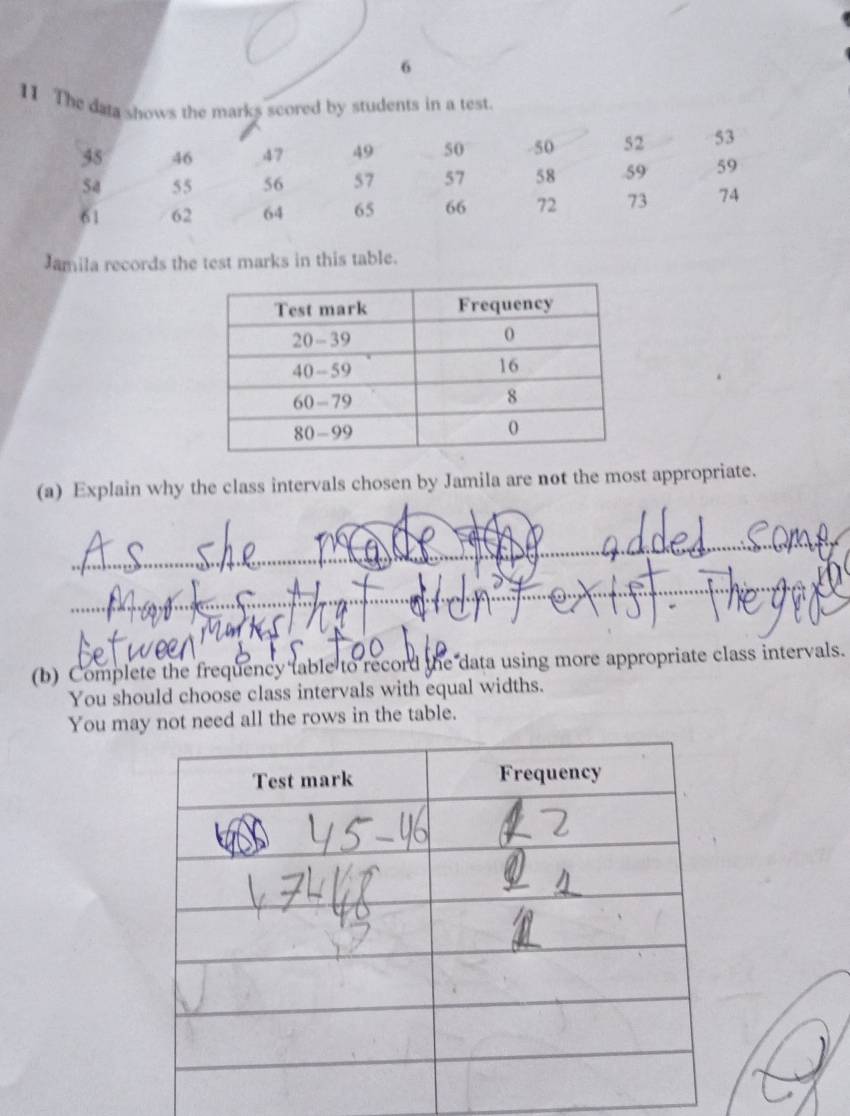 6
11 The data shows the marks scored by students in a test.
45 46 47 49 50 50 52 53
54 55 56 57 57 58 59 59
61 62 64 65 66 72 73 74
Jamila records the test marks in this table.
Test mark Frequency
20 – 39 0
40 – 59 16
60 – 79 8
80 – 99 0
(a) Explain why the class intervals chosen by Jamila are not the most appropriate.
As she added some
Marks that didn't exist. The gap
between marks is too big.
(b) Complete the frequency table to record the data using more appropriate class intervals.
You should choose class intervals with equal widths.
You may not need all the rows in the table.
Test mark Frequency
45-46 2
47-48 1